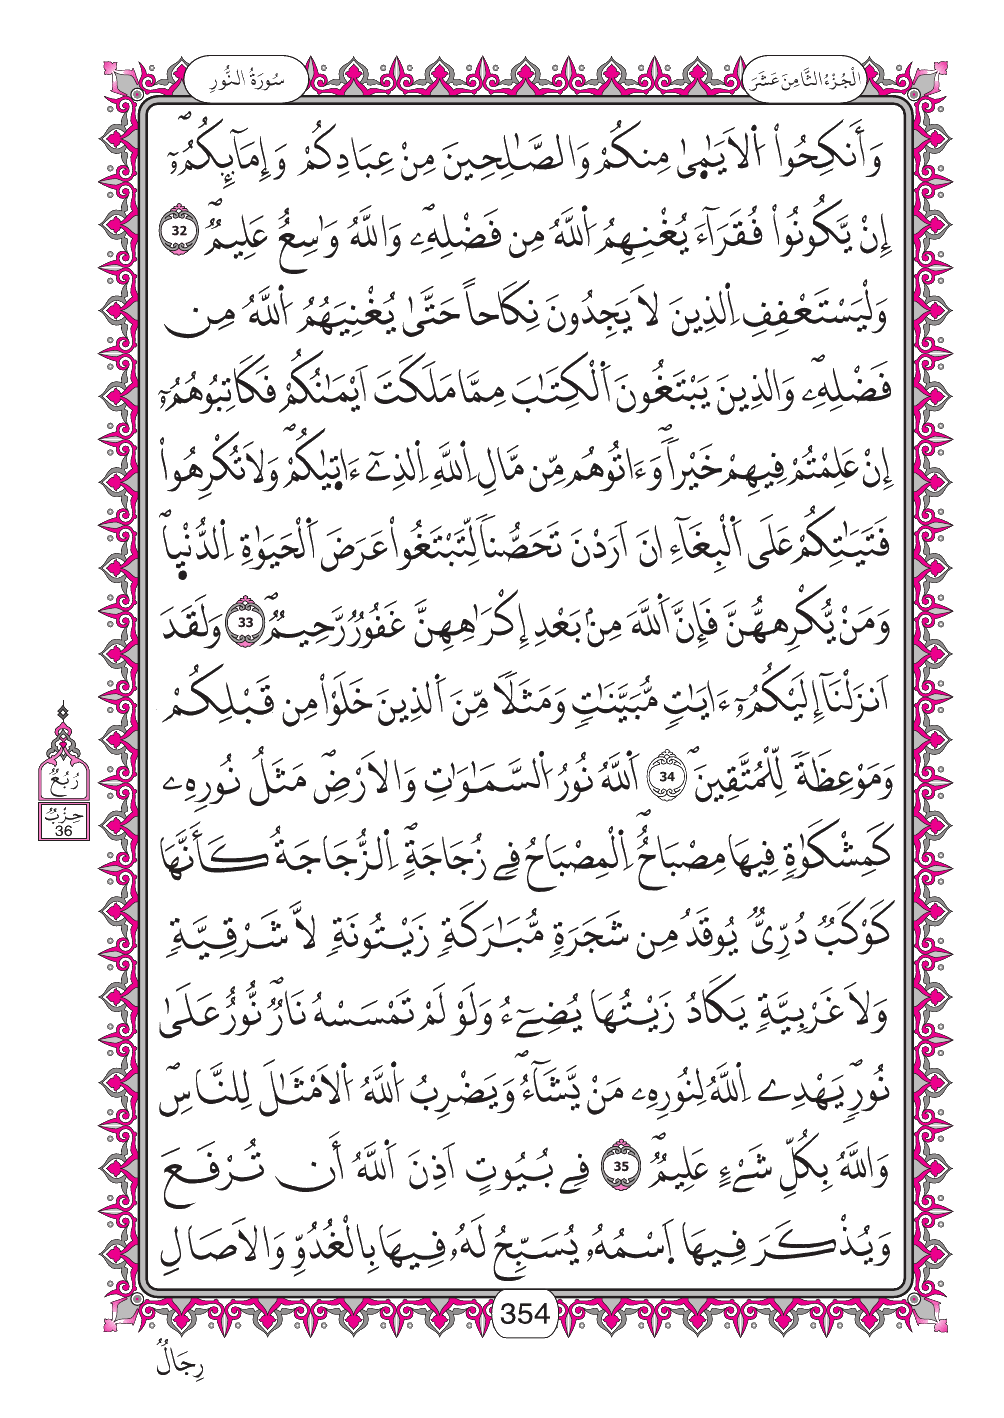 سُورَةُ النُّورِ
الْجُزْءُ الثَّامِنَ عَشَرَ
وَأَنكِحُواْ اُ۬لَايَٰم۪يٰ مِنكُمْ وَالصَّٰلِحِينَ مِنْ عِبَادِكُمْ وَإِمَآئِكُمُۥٓۖ
إِنْ يَّكُونُواْ فُقَرَآءَ يُغْنِهِمُ اُ۬للَّهُ مِن فَضْلِهِۦۖ وَاللَّهُ وَٰسِعٌ عَلِيمٌۖ 32
وَلْيَسْتَعْفِفِ اِ۬لذِينَ لَا يَجِدُونَ نِكَاحاً حَتَّىٰ يُغْنِيَهُمُ اُ۬للَّهُ مِن
فَضْلِهِۦۖ وَالذِينَ يَبْتَغُونَ اَ۬لْكِتَٰبَ مِمَّا مَلَكَتَ اَيْمَٰنُكُمْ فَكَاتِبُوهُمُۥٓ
إِنْ عَلِمْتُمْ فِيهِمْ خَيْراًۖ وَءَاتُوهُم مِّن مَّالِ اِ۬للَّهِ اِ۬لذِےٓ ءَات۪يٰكُمْۖ وَلَا تُكْرِهُواْ
فَتَيَٰتِكُمْ عَلَى اَ۬لْبِغَآءِ انَ اَرَدْنَ تَحَصُّناً لِّتَبْتَغُواْ عَرَضَ اَ۬لْحَيَوٰةِ اِ۬لدُّنْي۪اۖ
وَمَنْ يُّكْرِههُّنَّ فَإِنَّ اَ۬للَّهَ مِنۢ بَعْدِ إِكْرَٰهِهِنَّ غَفُورٌ رَّحِيمٌۖ 33 وَلَقَدَ
اَنزَلْنَآ إِلَيْكُمُۥٓ ءَايَٰتٖ مُّبَيَّنَٰتٖ وَمَثَلاٗ مِّنَ اَ۬لذِينَ خَلَوْاْ مِن قَبْلِكُمْ
وَمَوْعِظَةٗ لِّلْمُتَّقِينَۖ 34 اَ۬للَّهُ نُورُ اُ۬لسَّمَٰوَٰتِ وَالَارْضِۖ مَثَلُ نُورِهِۦ
كَمِشْكَوٰةٖ فِيهَا مِصْبَاحٌۖ اِ۬لْمِصْبَاحُ فِے زُجَاجَةٍۖ اِ۬لزُّجَاجَةُ كَأَنَّهَا
كَوْكَبٞ دُرِّيّٞ يُوقَدُ مِن شَجَرَةٖ مُّبَٰرَكَةٖ زَيْتُونَةٖ لَّا شَرْقِيَّةٖ
وَلَا غَرْبِيَّةٖ يَكَادُ زَيْتُهَا يُضِےٓءُ وَلَوْ لَمْ تَمْسَسْهُ نَارٞۖ نُّورٌ عَلَىٰ
نُورٖۖ يَهْدِے اِ۬للَّهُ لِنُورِهِۦ مَنْ يَّشَآءُۖ وَيَضْرِبُ اُ۬للَّهُ اُ۬لَامْثَٰلَ لِلنَّاسِۖ
وَاللَّهُ بِكُلِّ شَےْءٍ عَلِيمٞۖ 35 فِے بُيُوتٍ اَذِنَ اَ۬للَّهُ أَن تُرْفَعَ
وَيُذْكَرَ فِيهَا اَ۪سْمُهُۥ يُسَبِّحُ لَهُۥ فِيهَا بِالْغُدُوِّ وَالَاصَالِ
رُبُعُ
حِزْبٌ
36
354
رِجَالٌ